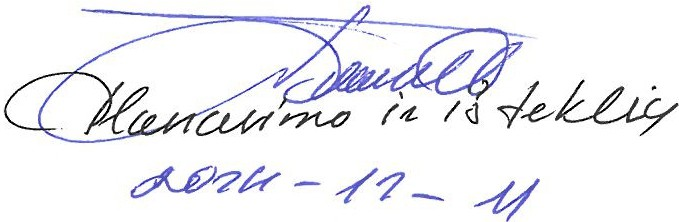 Planavimo ir išteklių
2024-12-11